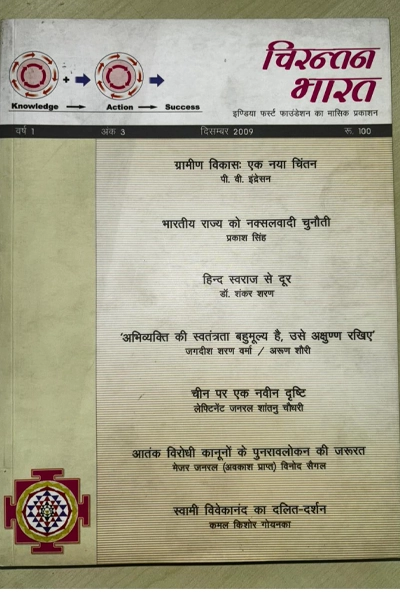 चिरन्तन
भारत
Knowledge Action Success
इण्डिया फर्स्ट फाउंडेशन का मासिक प्रकाशन
वर्ष 1 अंक 3 दिसम्बर 2009 रू. 100
ग्रामीण विकास: एक नया चिंतन
पी. वी. इंद्रेसन
भारतीय राज्य को नक्सलवादी चुनौती
प्रकाश सिंह
हिन्द स्वराज से दूर
डॉ. शंकर शरण
'अभिव्यक्ति की स्वतंत्रता बहुमूल्य है, उसे अक्षुण्ण रखिए'
जगदीश शरण वर्मा / अरूण शौरी
चीन पर एक नवीन दृष्टि
लेफ्टिनेंट जनरल शांतनु चौधरी
आतंक विरोधी कानूनों के पुनरावलोकन की जरूरत
मेजर जनरल (अवकाश प्राप्त) विनोद सैगल
स्वामी विवेकानंद का दलित-दर्शन
कमल किशोर गोयनका